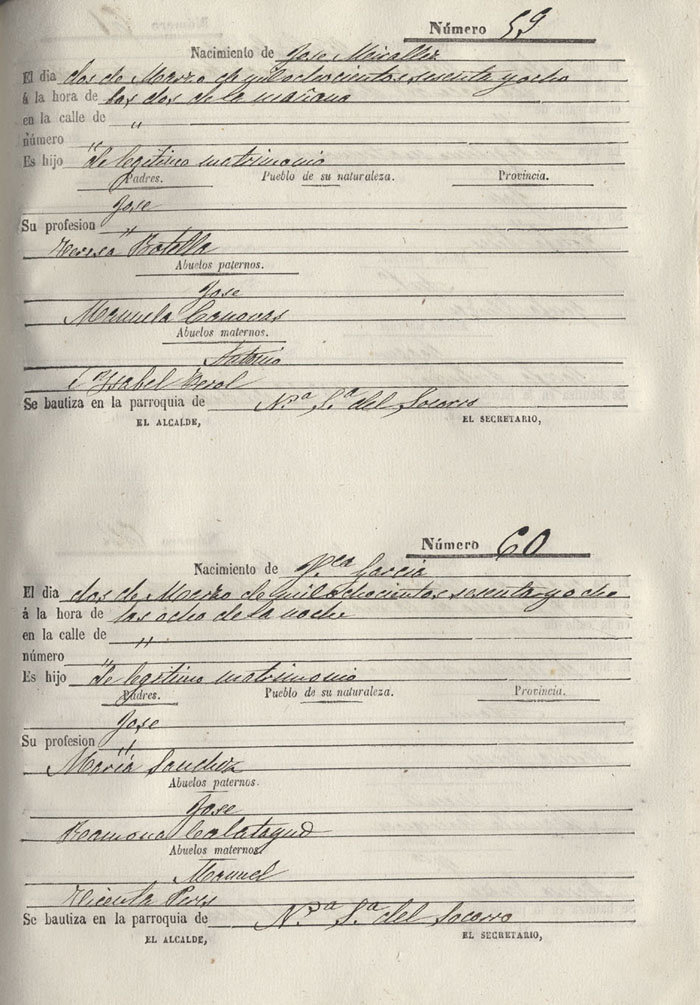 Número 59
Nacimiento de Jose Miralles
El dia dos de Marzo de mil ochocientos sesenta y ocho
á la hora de las dos de la mañana
en la calle de "
número "
Es hijo de legitimo matrimonio
Padres. Pueblo de su naturaleza. Provincia.
Jose
Su profesion "
Teresa Botella
Abuelos paternos.
Jose
Manuela Canovas
Abuelos maternos.
Antonio
Ysabel
Se bautiza en la parroquia de N.ª S.ª del Socorro
EL ALCALDE, EL SECRETARIO,
Número 60
Nacimiento de Garcia
El dia dos de Marzo de mil ochocientos sesenta y ocho
á la hora de las ocho de la noche
en la calle de "
número "
Es hijo de legitimo matrimonio
Padres. Pueblo de su naturaleza. Provincia.
Jose
Su profesion "
Maria Sanchez
Abuelos paternos.
Jose
Ramona Calatayud
Abuelos maternos.
Manuel
Vicenta
Se bautiza en la parroquia de N.ª S.ª del Socorro
EL ALCALDE, EL SECRETARIO,